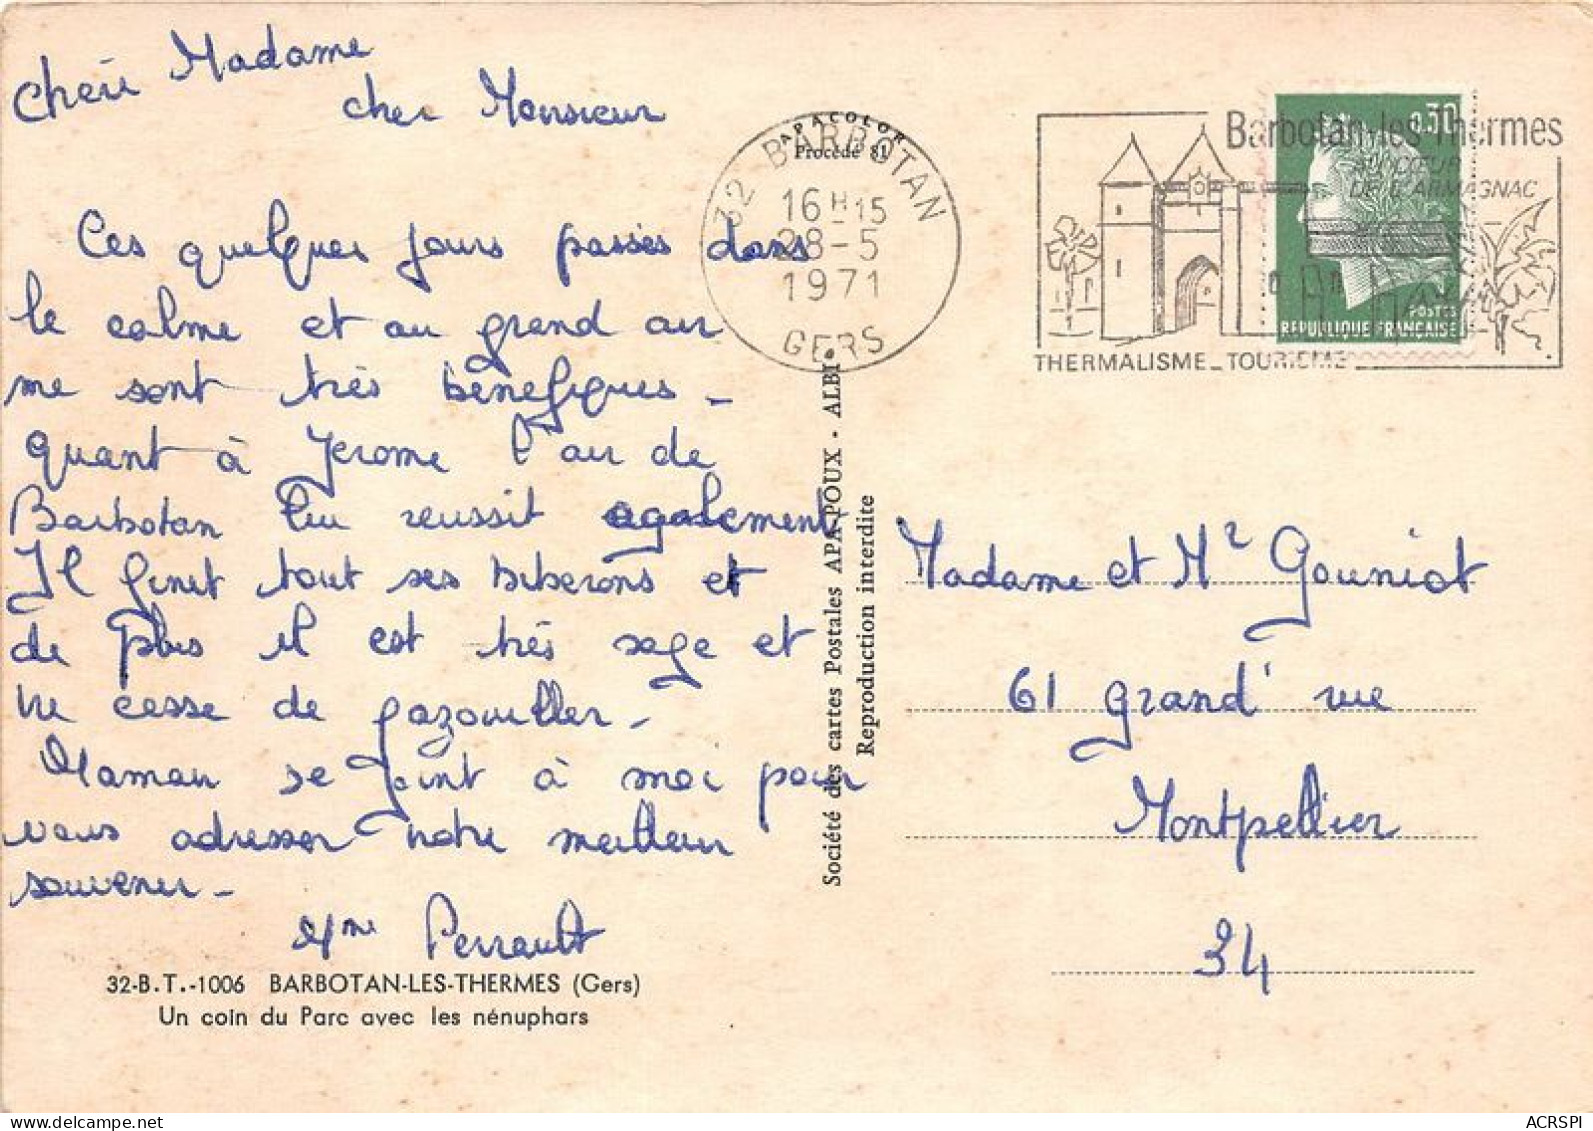 Chère Madame
cher Monsieur
Ces quelques jours passés dans
le calme et au grand air
me sont très bénéfiques -
quant à Jerome l'air de
Barbotan lui reussit egalement
Il finit tout ses biberons et
de plus il est très sage et
ne cesse de gazouiller -
Maman se joint à moi pour
vous adresser notre meilleur
souvenir -
Mme Perrault
32-B.T.-1006 BARBOTAN-LES-THERMES (Gers)
Un coin du Parc avec les nénuphars
APACOLOR
Procédé 81
32 BARBOTAN
16 H 15
28-5
1971
GERS
Société des cartes Postales APA-POUX - ALBI
Reproduction interdite
Barbotan-les-Thermes
AU CŒUR
DE L'ARMAGNAC
THERMALISME_TOURISME
0.30
POSTES
REPUBLIQUE FRANÇAISE
Madame et Mr Gouniot
61 grand' rue
Montpellier
34
ACRSPI